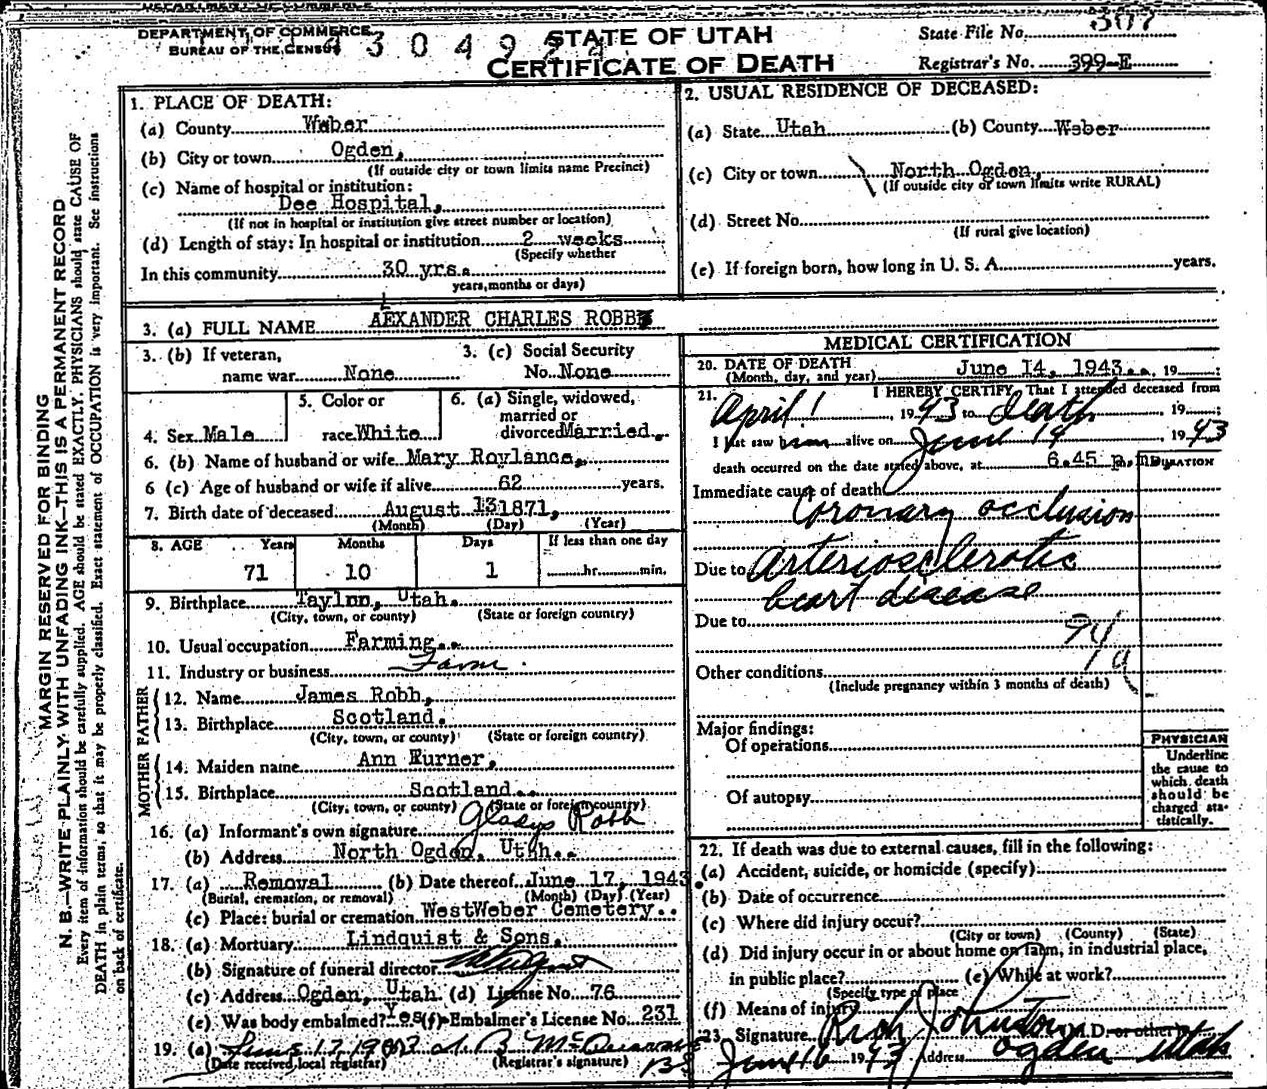 DEPARTMENT OF COMMERCE
BUREAU OF THE CENSUS
STATE OF UTAH
CERTIFICATE OF DEATH
State File No. 307
Registrar's No. 399-E
MARGIN RESERVED FOR BINDING
N. B.—WRITE PLAINLY WITH UNFADING INK—THIS IS A PERMANENT RECORD
Every item of information should be carefully supplied. AGE should be stated EXACTLY. PHYSICIANS should state CAUSE OF
DEATH in plain terms, so that it may be properly classified. Exact statement of OCCUPATION is very important. See instructions
on back of certificate.
1. PLACE OF DEATH:
(a) County Weber
(b) City or town Ogden,
(If outside city or town limits name Precinct)
(c) Name of hospital or institution:
Dee Hospital,
(If not in hospital or institution give street number or location)
(d) Length of stay: In hospital or institution 2 weeks
(Specify whether
In this community 30 yrs.
years, months or days)
2. USUAL RESIDENCE OF DECEASED:
(a) State Utah (b) County Weber
(c) City or town North Ogden,
(If outside city or town limits write RURAL)
(d) Street No.
(If rural give location)
(e) If foreign born, how long in U. S. A. years.
3. (a) FULL NAME AEXANDER CHARLES ROBB
3. (b) If veteran, 3. (c) Social Security
name war None No. None
4. Sex Male
5. Color or
race White
6. (a) Single, widowed,
married or
divorced Married.
6. (b) Name of husband or wife Mary Roylance,
6 (c) Age of husband or wife if alive 62 years.
7. Birth date of deceased August 13 1871,
(Month) (Day) (Year)
8. AGE Years Months Days If less than one day
71 10 1 hr. min.
9. Birthplace Taylor, Utah.
(City, town, or county) (State or foreign country)
10. Usual occupation Farming..
11. Industry or business Farm
FATHER
12. Name James Robb,
13. Birthplace Scotland.
(City, town, or county) (State or foreign country)
MOTHER
14. Maiden name Ann
15. Birthplace Scotland..
(City, town, or county) (State or foreign country)
16. (a) Informant's own signature Gladys Robb
(b) Address North Ogden, Utah..
17. (a) Removal (b) Date thereof June 17, 1943
(Burial, cremation, or removal) (Month) (Day) (Year)
(c) Place: burial or cremation WestWeber Cemetery..
18. (a) Mortuary Lindquist & Sons.
(b) Signature of funeral director
(c) Address Ogden, Utah (d) License No. 76
(e) Was body embalmed? Yes (f) Embalmer's License No. 231
19. (a) June 17, 1943
(Date received local registrar) (Registrar's signature)
MEDICAL CERTIFICATION
20. DATE OF DEATH
(Month, day, and year) June 14, 1943.., 19 ;
21. I HEREBY CERTIFY, That I attended deceased from
April 1, 1943 to death, 19 ;
I last saw him alive on June 14, 1943
death occurred on the date stated above, at 6.45 p.m.
DURATION
Immediate cause of death
Coronary occlusion
Due to Arteriosclerotic
heart disease
Due to
94
1a
Other conditions
(Include pregnancy within 3 months of death)
Major findings:
Of operations
Of autopsy
PHYSICIAN
Underline
the cause to
which death
should be
charged sta-
tistically.
22. If death was due to external causes, fill in the following:
(a) Accident, suicide, or homicide (specify)
(b) Date of occurrence
(c) Where did injury occur?
(City or town) (County) (State)
(d) Did injury occur in or about home on farm, in industrial place,
in public place? (e) While at work?
(Specify type of place
(f) Means of injury
23. Signature Rich Johnston (M.D. or other)
June 16 1943 Address Ogden Utah